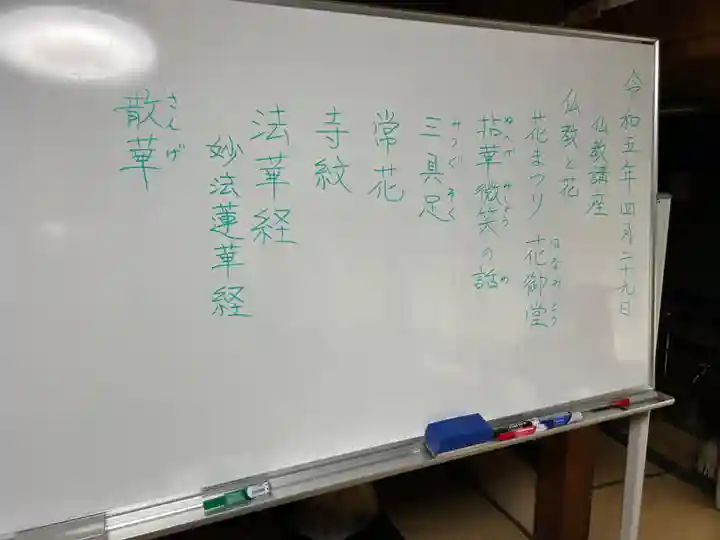 令和五年四月二十九日
仏教講座
仏教と花
花まつり 花御堂
はなみどう
拈華微笑の話
ねんげ みしょう の
三具足
みつぐそく
常花
寺紋
法華経
妙法蓮華経
散華
さんげ